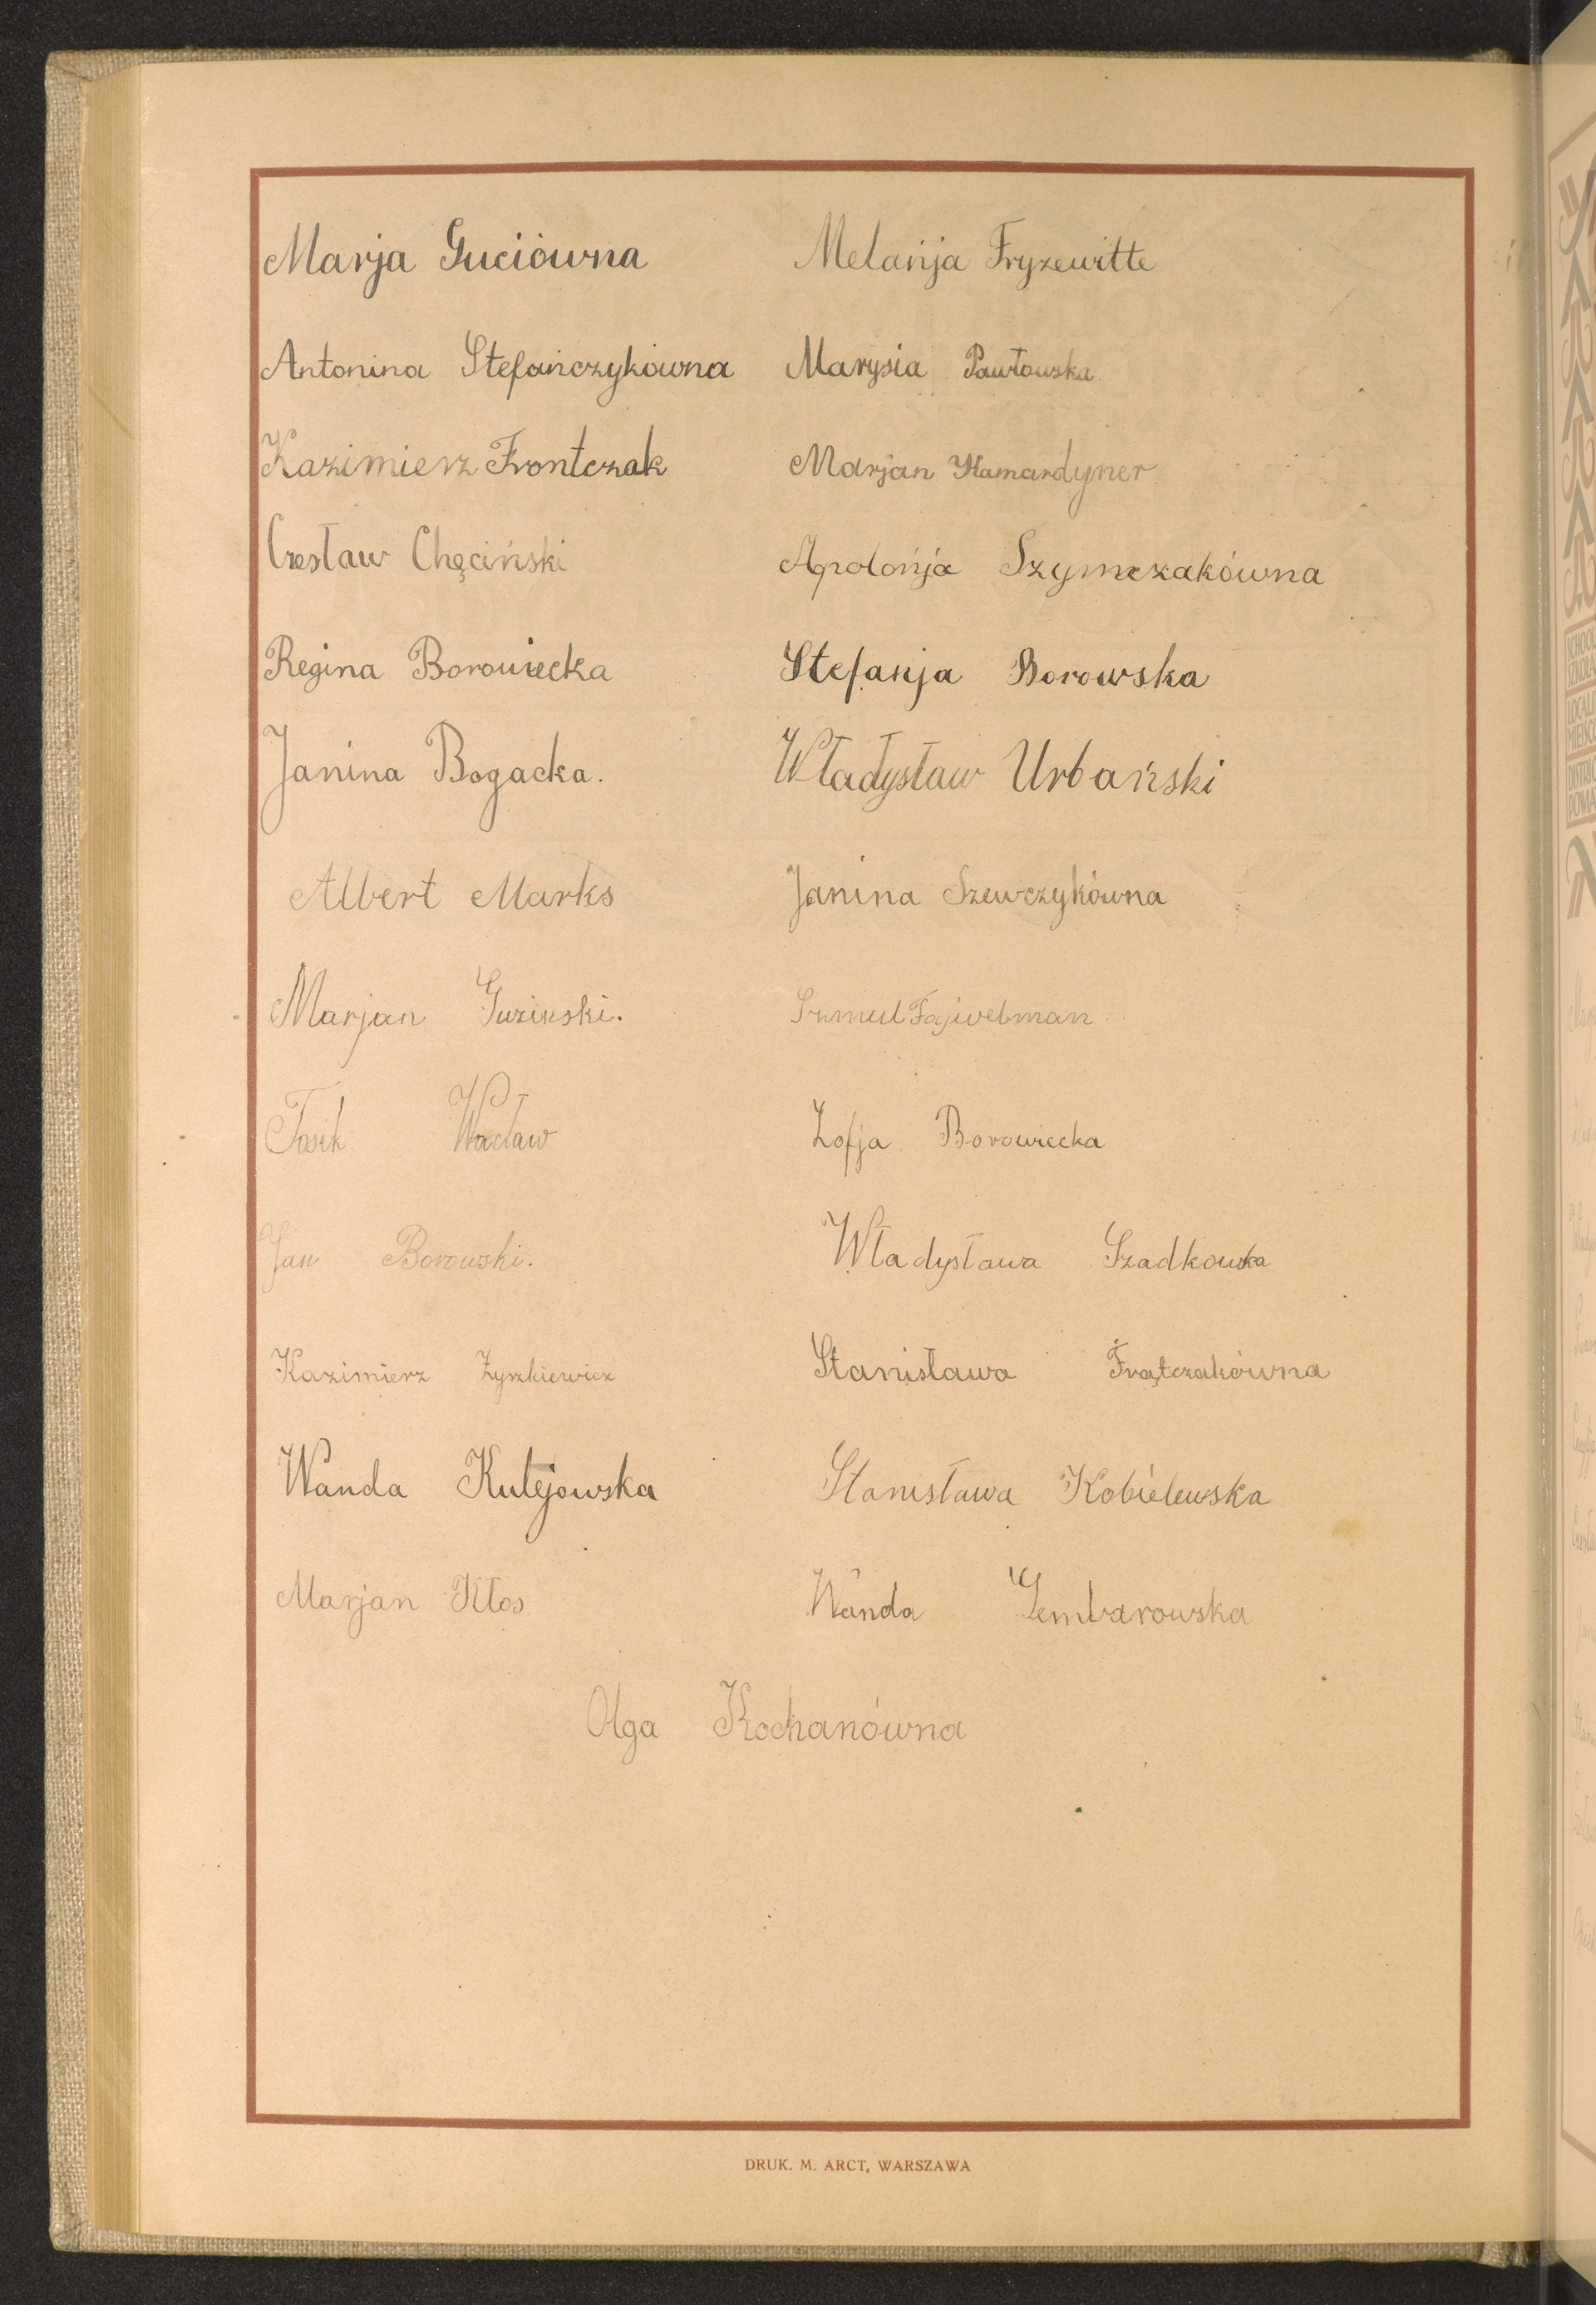 Marja Guciówna
Antonina Stefańczykówna
Kazimierz Frontczak
Czesław Chęciński
Regina Borowiecka
Janina Bogacka.
Albert Marks
Marjan Guziński.
Tosik Wacław
Jan Borowski.
Kazimierz Zyszkiewicz
Wanda Kulejowska
Marjan Kłos
Melanja Fryzewitte
Marysia Pawłowska
Marjan Hamardyner
Apolońja Szymczakówna
Stefanja Borowska
Władysław Urbański
Janina Szewczykówna
Szmul Fajwelman
Zofja Borowiecka
Władysława Szadkowska
Stanisława Frątczakówna
Stanisława Kobielewska
Wanda Gembarowska
Olga Kochanówna
DRUK. M. ARCT, WARSZAWA